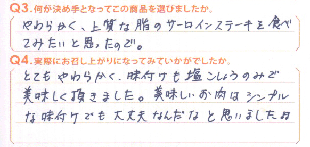 Q3.何が決め手となってこの商品を選びましたか。
やわらかく、上質な脂のサーロインステーキを食べ
てみたいと思ったので。
Q4.実際にお召し上がりになってみていかがでしたか。
とてもやわらかく、味付けも塩こしょうのみで
美味しく頂きました。美味しいお肉はシンプル
な味付けでも大丈夫なんだなと思いました日